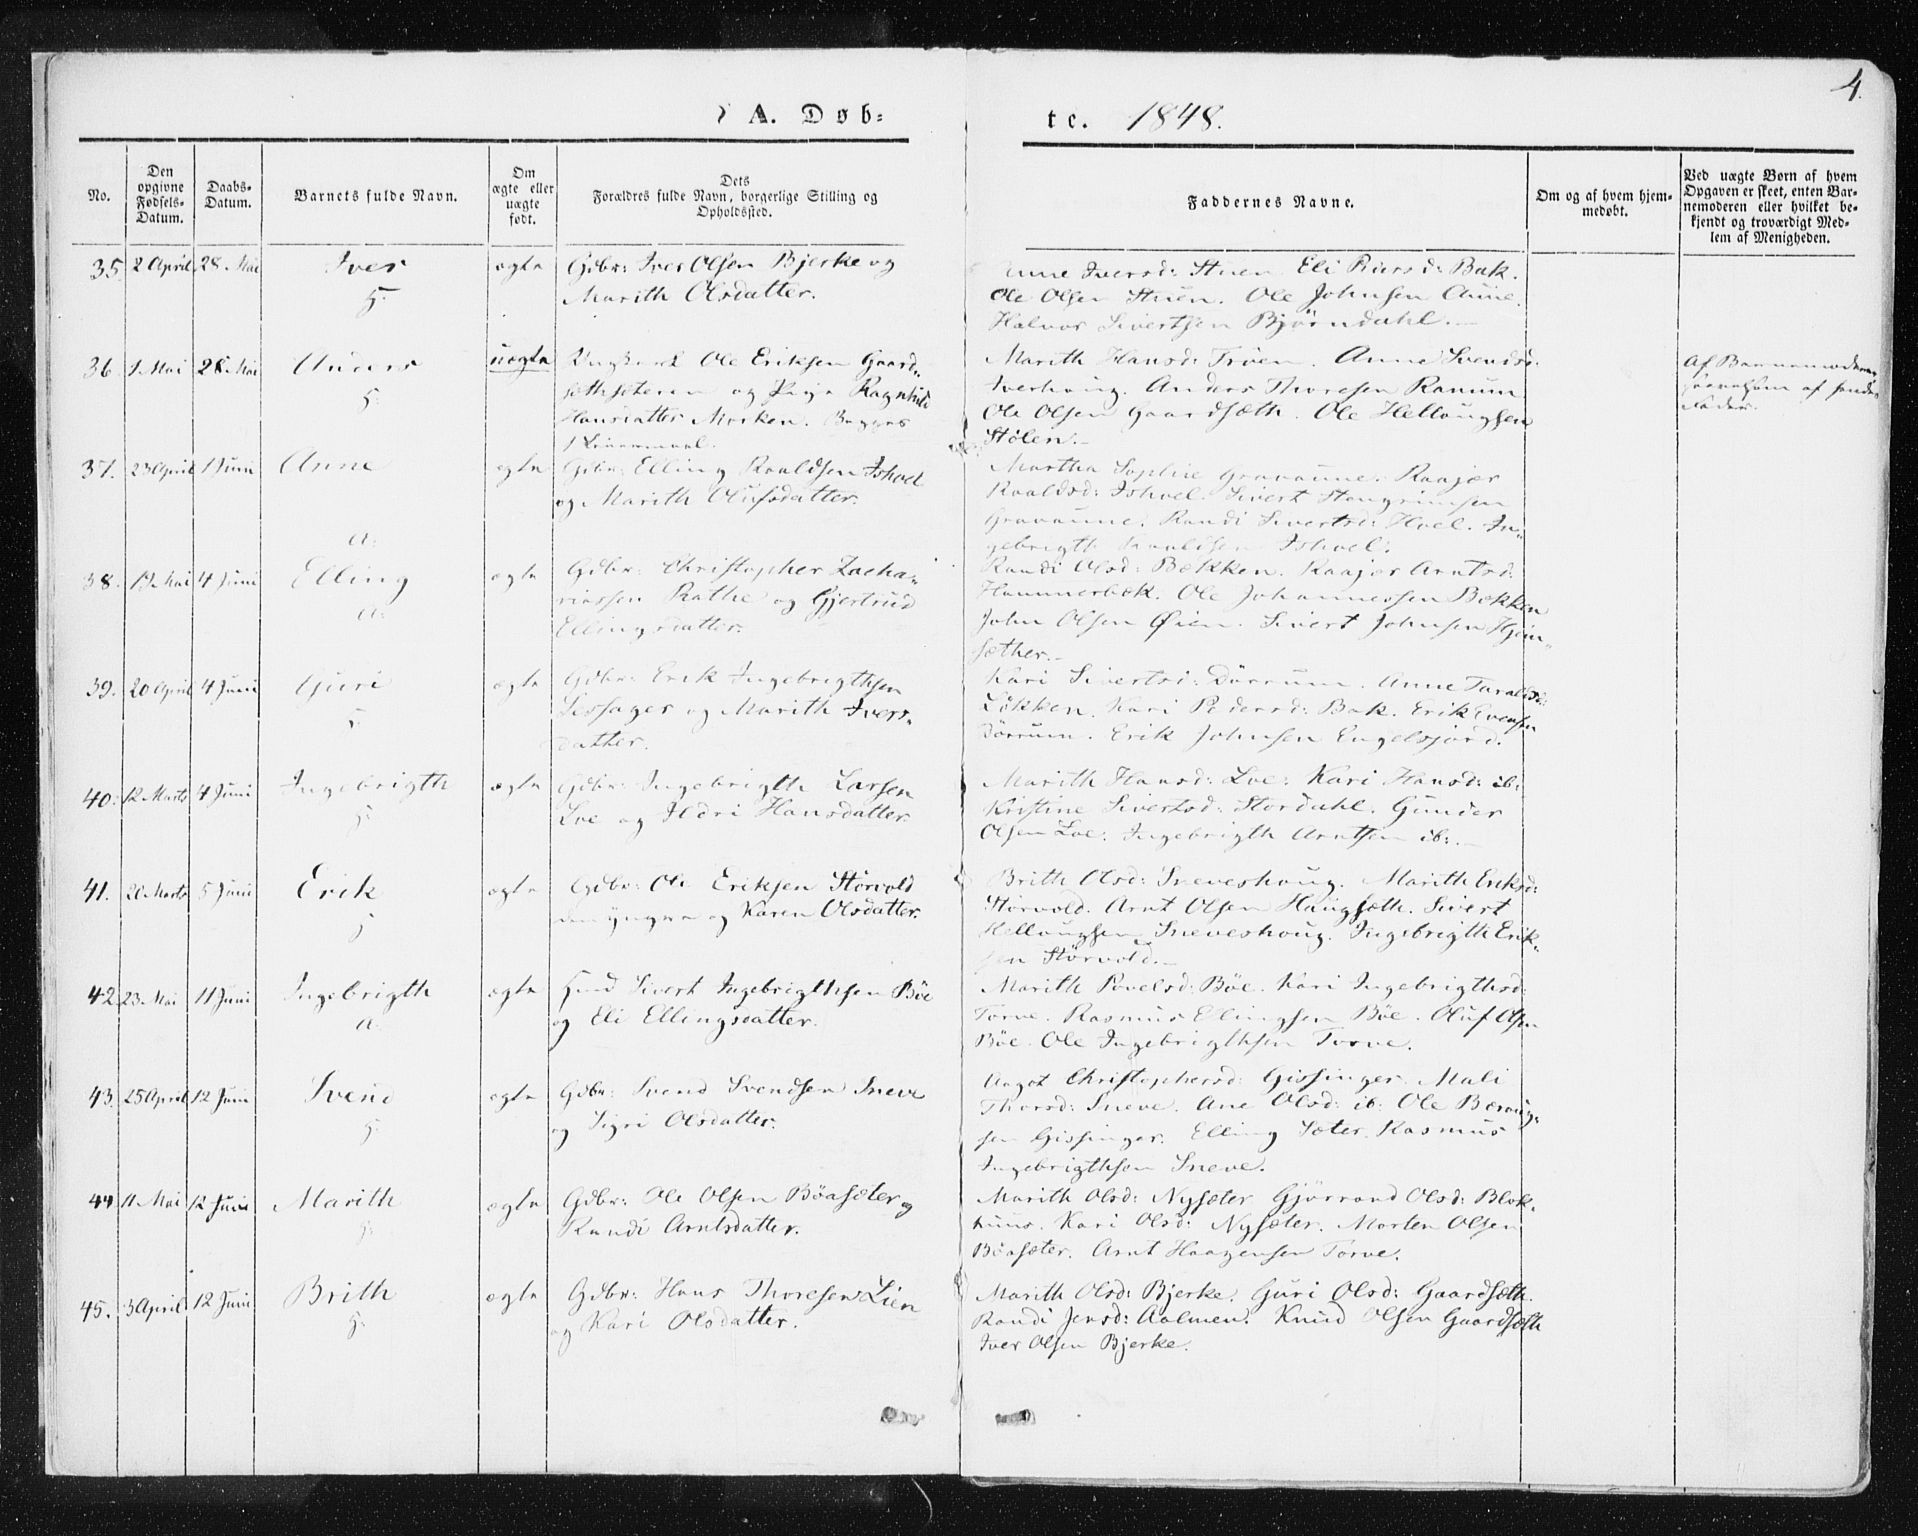 4.
A. Døb-
te. 1848.
No.
Den opgivne Fødsels-Datum.
Daabs-Datum.
Barnets fulde Navn.
Om ægte eller uægte født.
Dets
Forældres fulde Navn, borgerlige Stilling og
Opholdssted.
Faddernes Navne.
Om og af hvem hjem-
medøbt.
Ved uægte Børn af hvem
Opgaven er skeet, enten Bar-
nemoderen eller hvilket be-
kjendt og troværdigt Med-
lem af Menigheden.
35. 2 April 28 Mai Iver ægte Gdbr: Iver Olsen Bjerke og
Marith Olsdatter.
Anne Iversd: Stuen Eli Bak.
Ole Olsen Stuen. Ole Johnsen Aune.
Halvor Sivertsen Bjørndahl.
36. 1 Mai 28 Mai Anders uægte Ungkarl Ole Eriksen Gaard-
sæthsæteren og Pige Ragnhild
Hansdatter Morken. Begges
1 Leiermaal.
Marith Hansd: Trøen. Anne Svendsd:
Iverhoug. Anders Thoresen Ranum
Ole Olsen Gaardsæth. Ole Hellougsen
Stølen.
Af Barnemoderen
saavelsom af
Fader.
37. 23 April 1 Juni Anne ægte Gdbr: Elling Roaldsen Ishoel
og Marith Olufsdatter.
Martha Sophie Gravaune. Raajer
Roaldsd: Ishoel. Sivert Stengrimsen
Gravaune. Randi Sivertsd: Hoel. In-
gebrigth Roaldsen Ishoel.
38. Mai 4 Juni Elling ægte Gdbr: Christopher Zacha-
riassen Rathe og Gjertrud
Ellingsdatter.
Randi Olsd: Bekken. Raajer Arntsd:
Hammerbæk. Ole Johannessen Bekken
John Olsen Øien. Sivert Johnsen Hjem-
sæther.
39. 20 April 4 Juni Guri ægte Gdbr: Erik Ingebrigthsen
og Marith Ivers-
datter.
Kari Sivertsd: Dørrum. Anne Taralds:
Løkken. Kari Pedersd: Bak. Erik Evensen
Dørrum. Erik Johnsen Engelsjord.
40. 12 Marts 4 Juni Ingebrigth ægte Gdbr: Ingebrigth Larsen
Loe og Ildri Hansdatter.
Marith Hansd: Loe. Kari Hansd: ib:
Kristine Sivertsd: Stordahl. Gunder
Olsen Loe. Ingebrigth Arntsen ib:
41. 20 Marts 5 Juni Erik ægte Gdbr: Ole Eriksen Størvold
den yngre og Karen Olsdatter.
Brith Olsd: Sneveshoug. Marith Eriksd:
Størvold. Arnt Olsen Haugsæth. Sivert
Hellougsen Sneveshoug. Ingebrigth Erik-
sen Størvold.
42. 23 Mai 11 Juni Ingebrigth ægte Sivert Ingebrigthsen Böe
og Eli Ellingsdatter.
Marith Povelsd: Böe. Kari Ingebrigthsd:
Torve. Rasmus Ellingsen Böe. Oluf Olsen
Böe. Ole Ingebrigthsen Torve.
43. 25 April 12 Juni Svend ægte Gdbr: Svend Svendsen Sneve
og Sigri Olsdatter.
Angot Christophersd: Gissinger. Mali
Thorsd: Sneve. Ane Olsd: ib: Ole Bersvig-
sen Gissinger. Elling Sæter. Rasmus
Ingebrigthsen Sneve.
44. 11 Mai 12 Juni Marith ægte Gdbr: Ole Olsen Böasæter og
Randi Arntsdatter.
Marith Olsd: Nysæter. Gjørrond Olsd: Blok-
huus. Kari Olsd: Nysæter. Morten Olsen
Böasæter. Arnt Haagensen Torve.
45. 3 April 12 Juni Brith ægte Gdbr: Hans Thoresen Lien
og Kari Olsdatter.
Marith Olsd: Bjerke. Guri Olsd: Gaardsæth.
Randi Jensd: Aalmen. Knud Olsen Gaardsæth
Iver Olsen Bjerke.